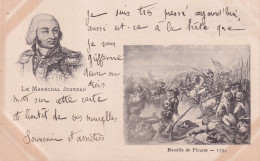 je suis très pressé aujourd'hui,
aussi est-ce à la hâte que
je vous
griffonne
deux ou
trois
mots sur cette carte
et bientôt de vos nouvelles
Souvenirs d'amitiés
LE MARÉCHAL JOURDAN
Bataille de Fleurus — 1794